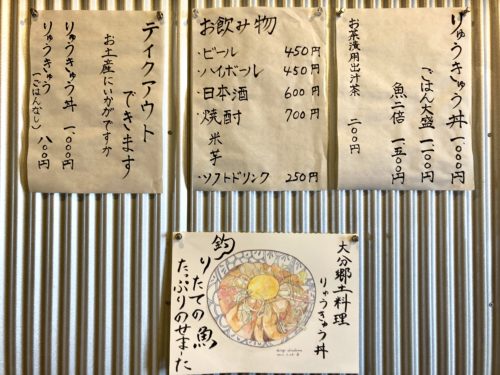 りゅうきゅう丼 一、〇〇〇円
ごはん大盛 一、一〇〇円
魚二倍 一、五〇〇円
お茶漬用出汁茶 二〇〇円
お飲み物
・ビール 450円
・ハイボール 450円
・日本酒 600円
・焼酎 700円
米
芋
・ソフトドリンク 250円
テイクアウト
できます
お土産にいかがですか
りゅうきゅう丼 一、〇〇〇円
りゅうきゅう 八〇〇円
(ごはんなし)
大分郷土料理
りゅうきゅう丼
釣りたての魚
たっぷりのせました